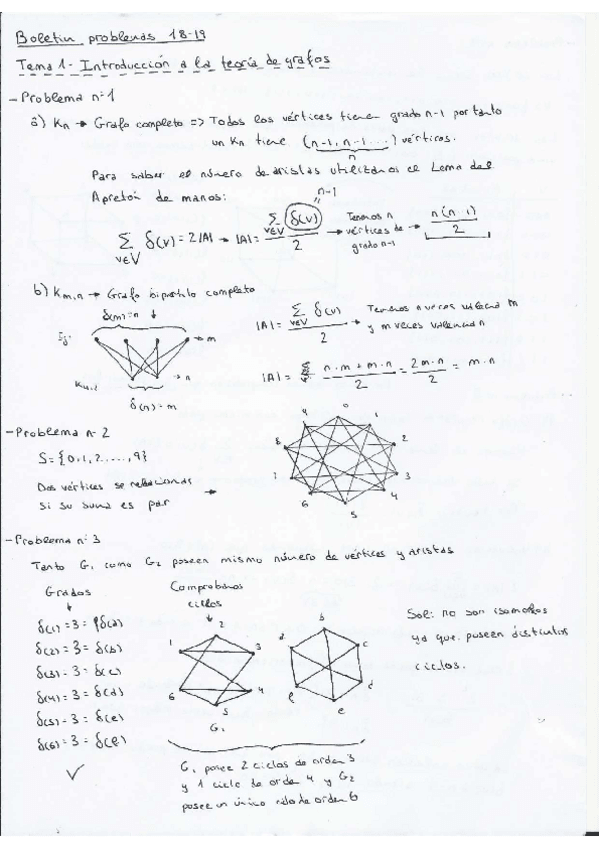 Boletín problemas 18-19
Tema 1- Introducción a la teoría de grafos
- Problema nº1
a) Kn → Grafo completo => Todos los vértices tienen grado n-1 por tanto
un Kn tiene (n-1, n-1 ...) vértices.
n
Para saber el número de aristas utilizamos el Lema del
Apretón de manos:
n-1
∑ v∈V δ(v) = 2|A| → |A| = ∑ v∈V δ(v) / 2 → Tenemos n vértices de grado n-1 → n(n-1) / 2
b) Km,n → Grafo bipartito completo
δ(m)=n
Ej:
m
n
K4,2
δ(n)=m
|A| = ∑ v∈V δ(v) / 2 → Tenemos n veces valencia m
y m veces valencia n
|A| = n·m + m·n / 2 = 2m·n / 2 = m·n
- Problema nº 2
S = {0,1,2,...,9}
Dos vértices se relacionan →
si su suma es par
9 0 1
8 2
3
6 4
5
- Problema nº 3
Tanto G1 como G2 poseen mismo número de vértices y aristas
Grados
Comprobamos
ciclos
δ(1) = 3 = δ(a)
δ(2) = 3 = δ(b)
δ(3) = 3 = δ(c)
δ(4) = 3 = δ(d)
δ(5) = 3 = δ(e)
δ(6) = 3 = δ(f)
✓
1 2 3
6 5 4
G1
a b c
f e d
Sol: no son isomorfos
ya que poseen distintos
ciclos.
G1 posee 2 ciclos de orden 3
y 1 ciclo de orden 4 y G2
posee un único ciclo de orden 6